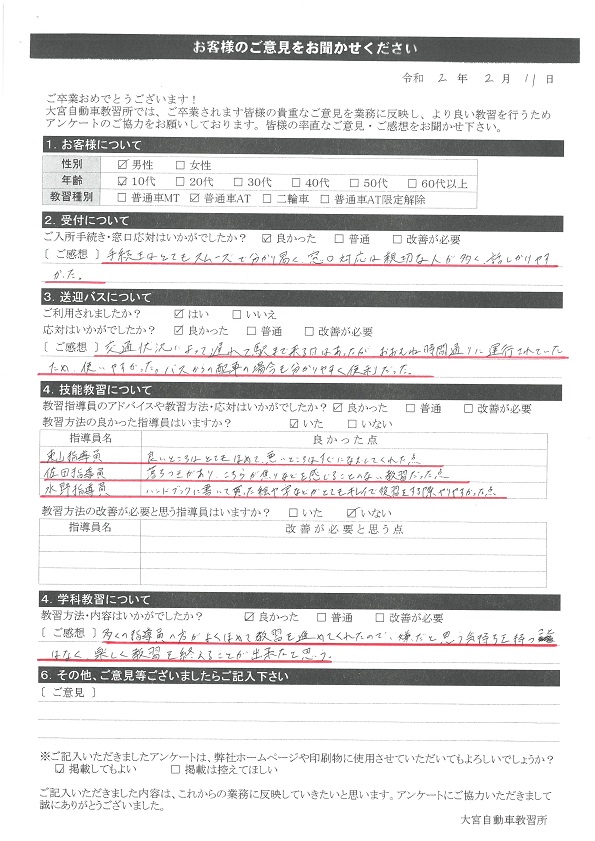 お客様のご意見をお聞かせください
令和 2 年 2 月 11 日
ご卒業おめでとうございます！
大宮自動車教習所では、ご卒業されます皆様の貴重なご意見を業務に反映し、より良い教習を行うため
アンケートのご協力をお願いしております。皆様の率直なご意見・ご感想をお聞かせ下さい。
1. お客様について
性別 ☑ 男性 □ 女性
年齢 ☑ 10代 □ 20代 □ 30代 □ 40代 □ 50代 □ 60代以上
教習種別 □ 普通車MT ☑ 普通車AT □ 二輪車 □ 普通車AT限定解除
2. 受付について
ご入所手続き・窓口応対はいかがでしたか？ ☑ 良かった □ 普通 □ 改善が必要
[ ご感想 ] 手続きはとてもスムーズで分かり易く、窓口対応は親切な人が多く、話しかりやす
かった。
3. 送迎バスについて
ご利用されましたか？ ☑ はい □ いいえ
応対はいかがでしたか？ ☑ 良かった □ 普通 □ 改善が必要
[ ご感想 ] 交通状況によって遅れて駅まで来る日はあったが おおむね時間通りに運行されていた
ため、使いやすかった。バスからの配車の場合も分かりやすく便利だった。
4. 技能教習について
教習指導員のアドバイスや教習方法・応対はいかがでしたか？ ☑ 良かった □ 普通 □ 改善が必要
教習方法の良かった指導員はいますか？ ☑ いた □ いない
指導員名 良かった点
指導員 良いところはとてもほめて、悪いところはすぐになおしてくれた点
佐田指導員 落ちつきがあり、こちらが焦りなどを感じることのない教習だった点
水野指導員 ハンドブックに書いて貰った絵や字などがとてもキレイで復習をする際やりやすかった点
教習方法の改善が必要と思う指導員はいますか？ □ いた ☑ いない
指導員名 改善が必要と思う点
4. 学科教習について
教習方法・内容はいかがでしたか？ ☑ 良かった □ 普通 □ 改善が必要
[ ご感想 ] 多くの指導員の方がよくほめて教習を進めてくれたので、嫌だと思う気持ちを持つ
はなく、楽しく教習を終えることが出来たと思う。
6. その他、ご意見等ございましたらご記入下さい
[ ご意見 ]
※ご記入いただきましたアンケートは、弊社ホームページや印刷物に使用させていただいてもよろしいでしょうか？
☑ 掲載してもよい □ 掲載は控えてほしい
ご記入いただきました内容は、これからの業務に反映していきたいと思います。アンケートにご協力いただきまして
誠にありがとうございました。
大宮自動車教習所